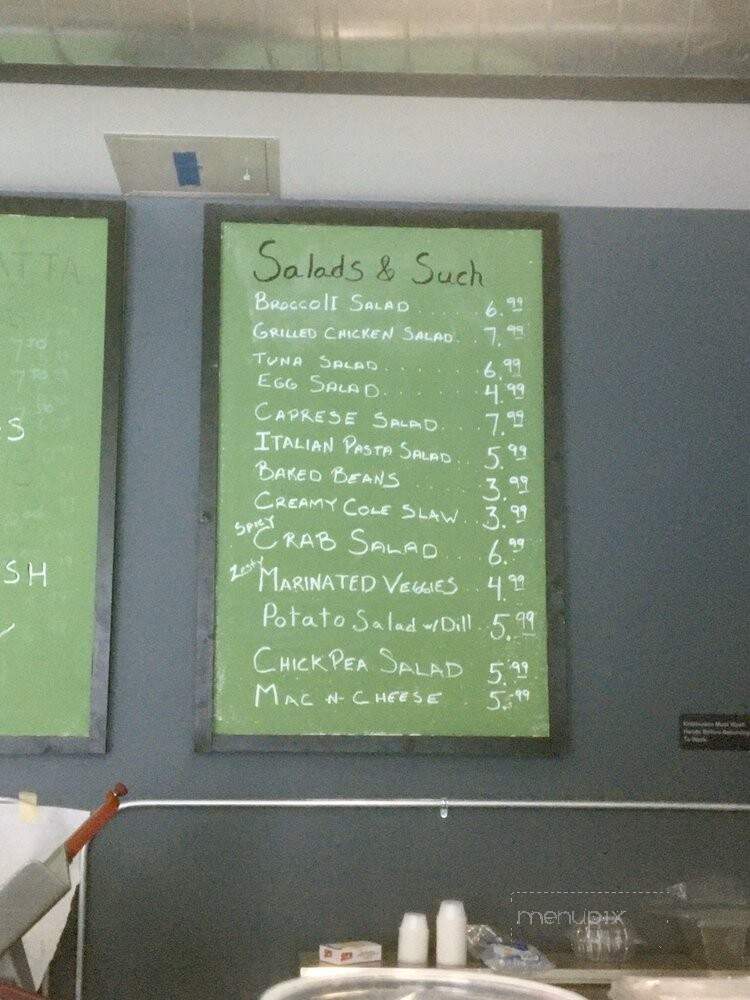 ATTA
7.50
7.50
S
SH
Salads & Such
Broccoli Salad .... 6.99
Grilled Chicken Salad. . 7.99
Tuna Salad ...... 6.99
Egg Salad ...... 4.99
Caprese Salad ... 7.99
Italian Pasta Salad .. 5.99
Baked Beans ... 3.99
Creamy Cole Slaw .. 3.99
Spicy Crab Salad ... 6.99
Zesty Marinated Veggies .. 4.99
Potato Salad w/ Dill .. 5.99
ChickPea Salad 5.99
Mac n Cheese 5.99
Employees Must Wash
Hands Before Returning
To Work
menupix